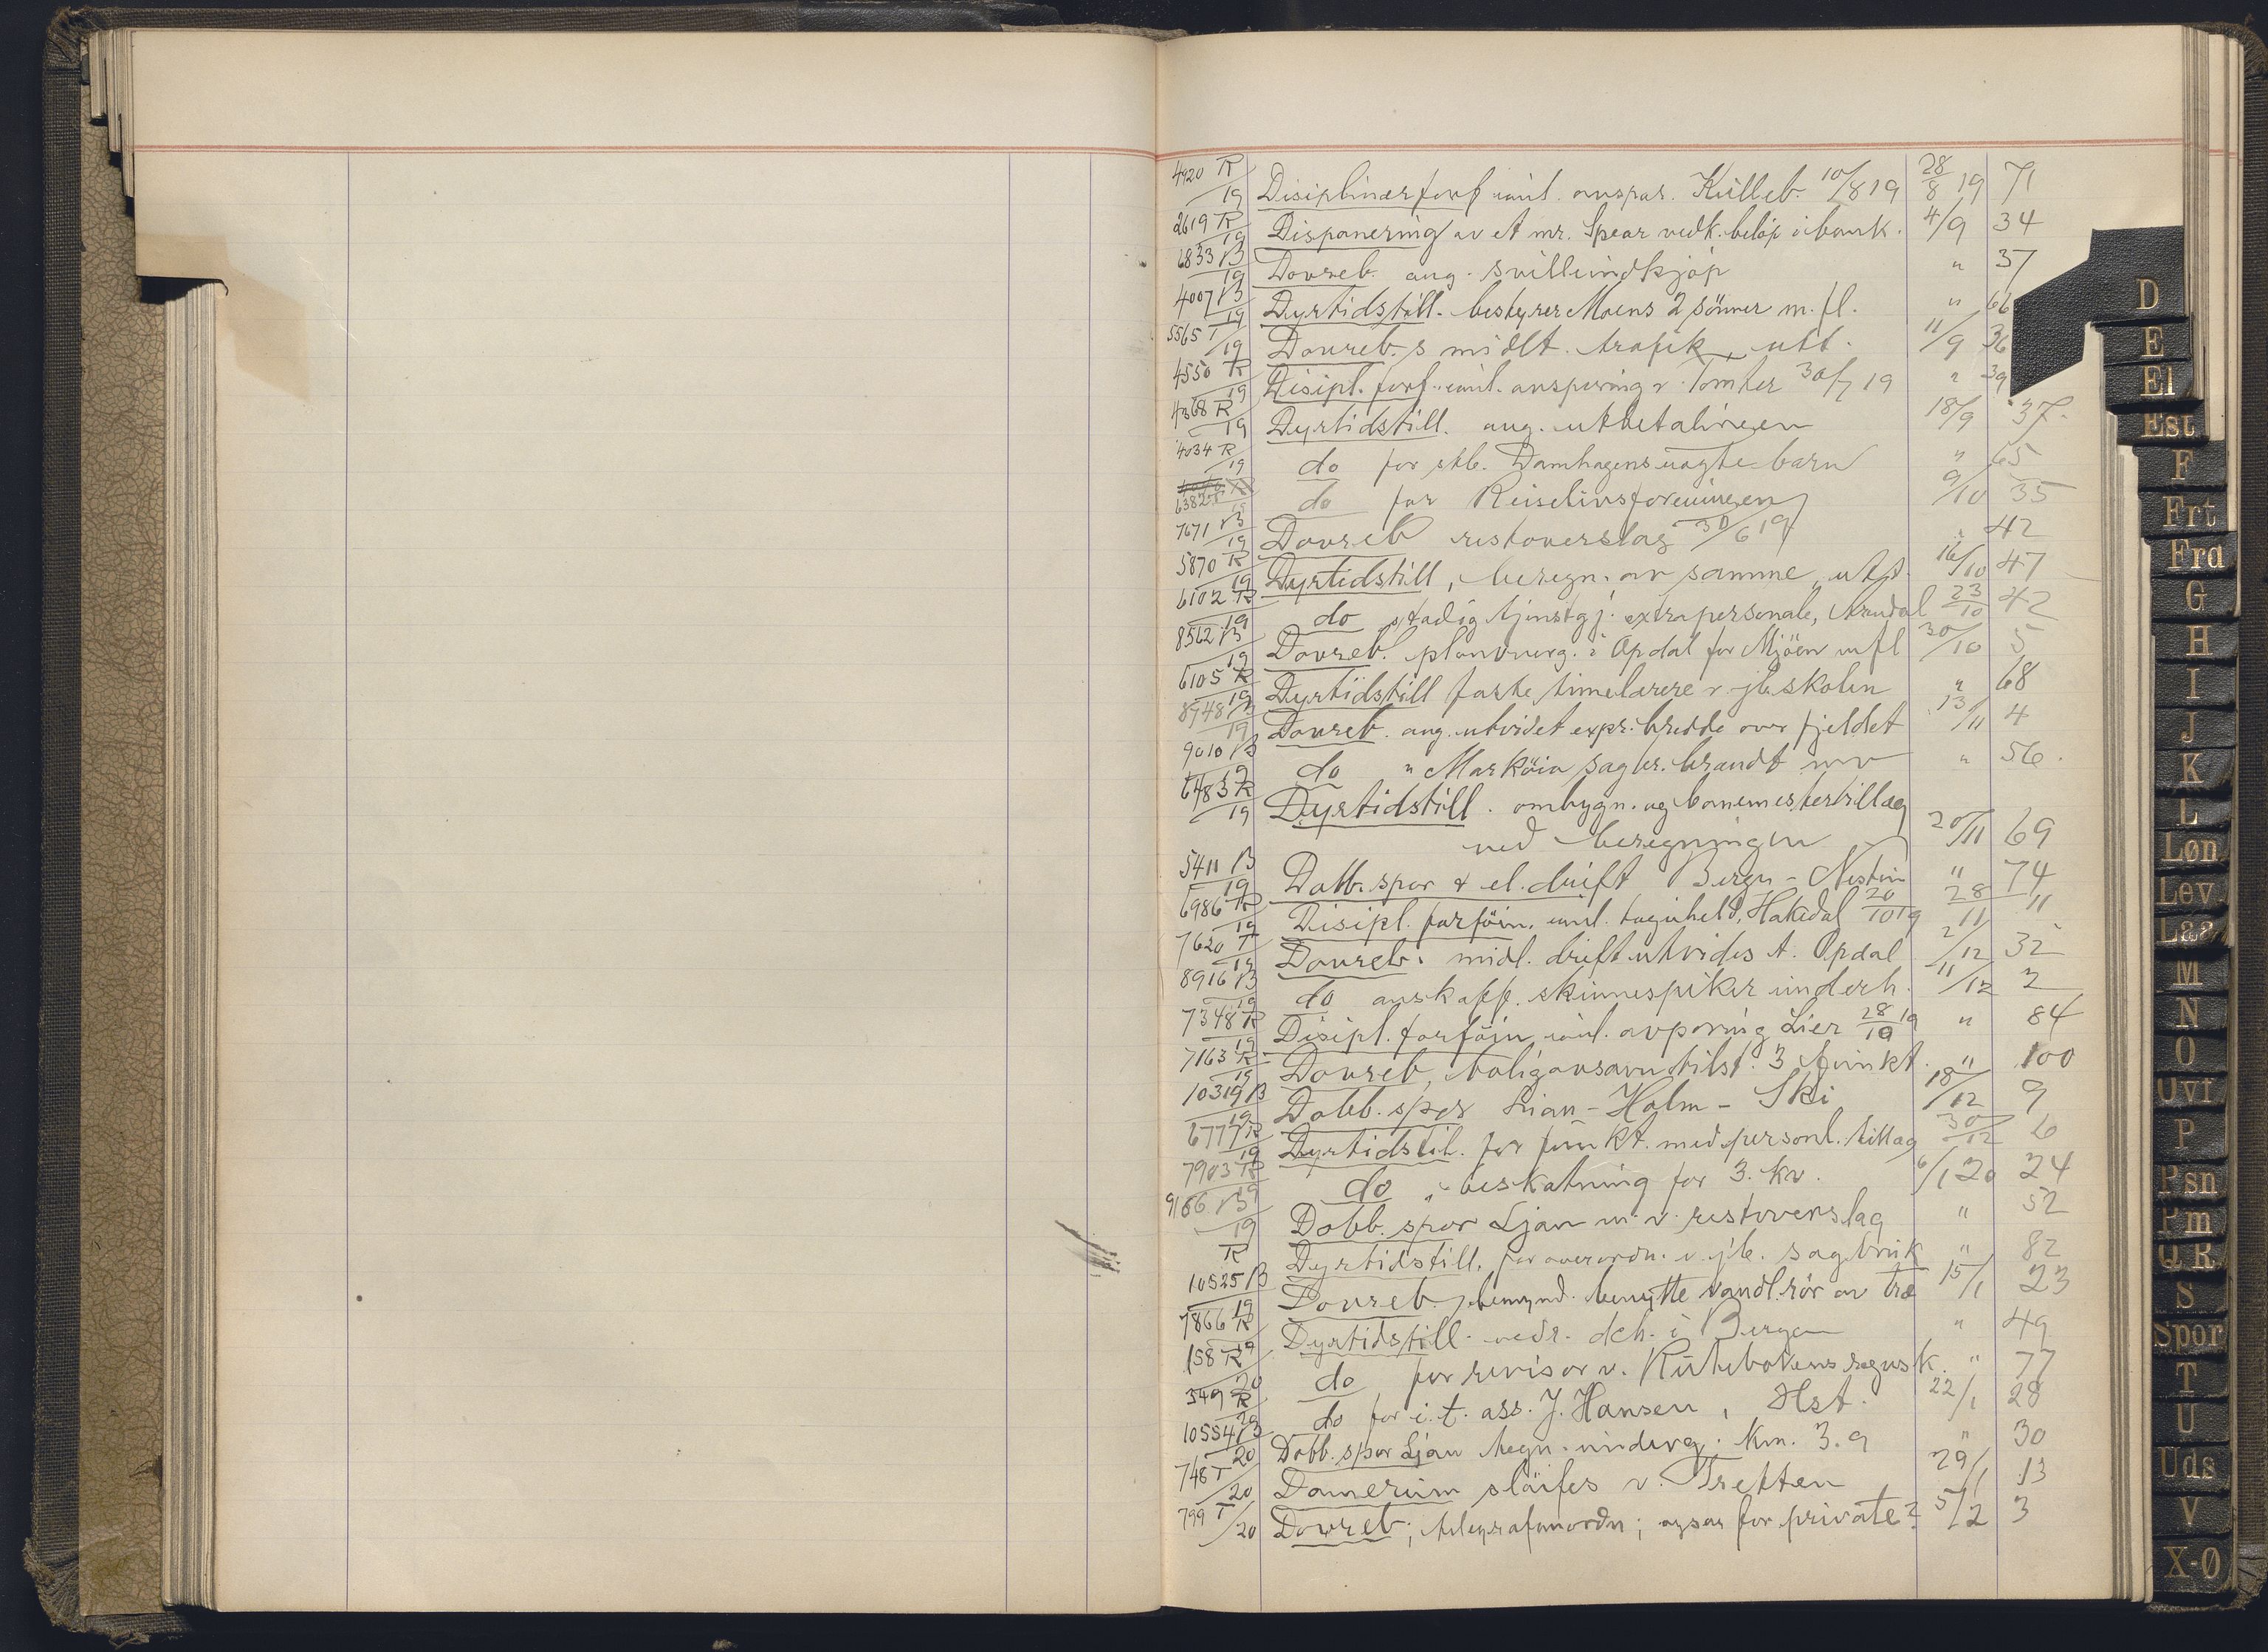 4920 R/19 Disiplinærforf. anl. avspor. Killeb. 10/8 19 28/8 19 71
2619 R/19 Disponering av et mr. Spear vedk. beløp i bank. 4/9 34
6833 B/19 Dovreb. ang. svilleindkjøp " 37
4007 B/19 Dyrtidstill. bestyrer Moens 2 sönner m. fl. " 66
5565 T/19 Dovreb.s midlt. trafik, utt. 11/9 36
4550 R/19 Disipl. forf. anl. avsporing v. Tomter 30/7 19 " 39
4368 R/19 Dyrtidstill. ang. utbetalingen 18/9 37.
4034 R/19 do for stb. Damhagens uægte barn " 65
6382 do for Reiselivsforeningen 9/10 35
7671 B/19 Dovreb restoverslag 30/6 19 " 42
5870 R/19 Dyrtidstill, beregn. av samme, 16/10 47
6102 R/19 do stadig tjenstgj. extrapersonale, Arendal 23/10 42
8562 B/19 Dovreb. planoverg. i Opdal for Mjöen mfl 30/10 5
6105 R/19 Dyrtidstill faste timelærere v. jb.skolen " 68
8748 B/19 Dovreb. ang. utvidet expr. bredde over fjeldet 13/11 4
9010 B/19 do " sagbr. brandt mv " 56.
6483 R/19 Dyrtidstill. ombygn. og banemestertillæg
ved beregningen 20/11 69
5411 B/19 Dobb. spor & el. drift Bergen - Nestun " 74
6986 R/19 Disipl. forföin. anl. toguheld, Hakedal 20/10 19 28/11 11
7620 T/19 Dovreb. midl. drift utvides t. Opdal 2/12 32
8916 B/19 do anskaff. skinnespiker underh. 11/12 2
7348 R/19 Disipl. forföin anl. avsporing Lier 28/10 19 " 84
7163 R/19 Dovreb, boligansavn tilst. 3 funkt. " 100
10319 B/19 Dobb. spor Lian - Holm - Ski 18/12 9
6777 R/19 Dyrtidstil. for funkt. med personl. tillæg 30/12 6
7903 R/19 do, beskatning for 3. kv. 6/1 20 24
9166 B/19 Dobb. spor Ljan m. v. restoverslag " 52
R Dyrtidstill. for overordn. v. jb. sagbruk " 82
10525 B/19 Dovreb. bemynd. benytte vandl.rör av træ 15/1 23
7866 R/19 Dyrtidstill. vedr. dch. i Bergen " 49
158 R/20 do for revisor v. Rutebokens regnsk. " 77
349 R/20 do for i. t. ass. J. Hansen, Hst. 22/1 28
10554 B/20 Dobb. spor Ljan tegn. underg. Km. 3.9 " 30
748 T/20 slöifes v. Tretten 29/1 13
799 T/20 Dovreb; telegrafanordn; ogsaa for private? 5/2 3
D
E
El
Est
F
Frt
Frd
G
H
I
J
K
L
Løn
Lev.
Laa
M
N
O
Ovf
P
Psn
Pm
Q R
S
Spor
T
U
Uds
V
X-Ø